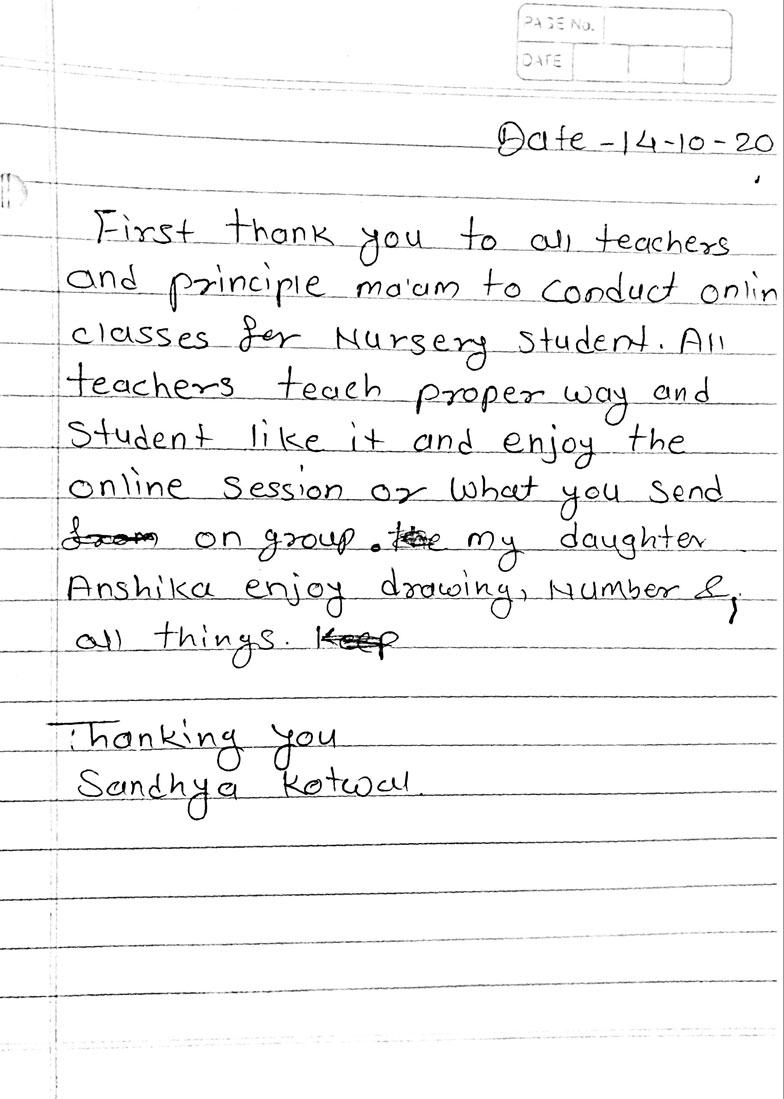 PAGE No.
DATE
Date - 14-10-20
First thank you to all teachers
and principle ma'am to conduct onlin
classes for Nursery student. All
teachers teach proper way and
Student like it and enjoy the
online session or what you send
from on group. the my daughter
Anshika enjoy drawing, Number &,
all things. Keep
Thanking you
Sandhya Kotwal.